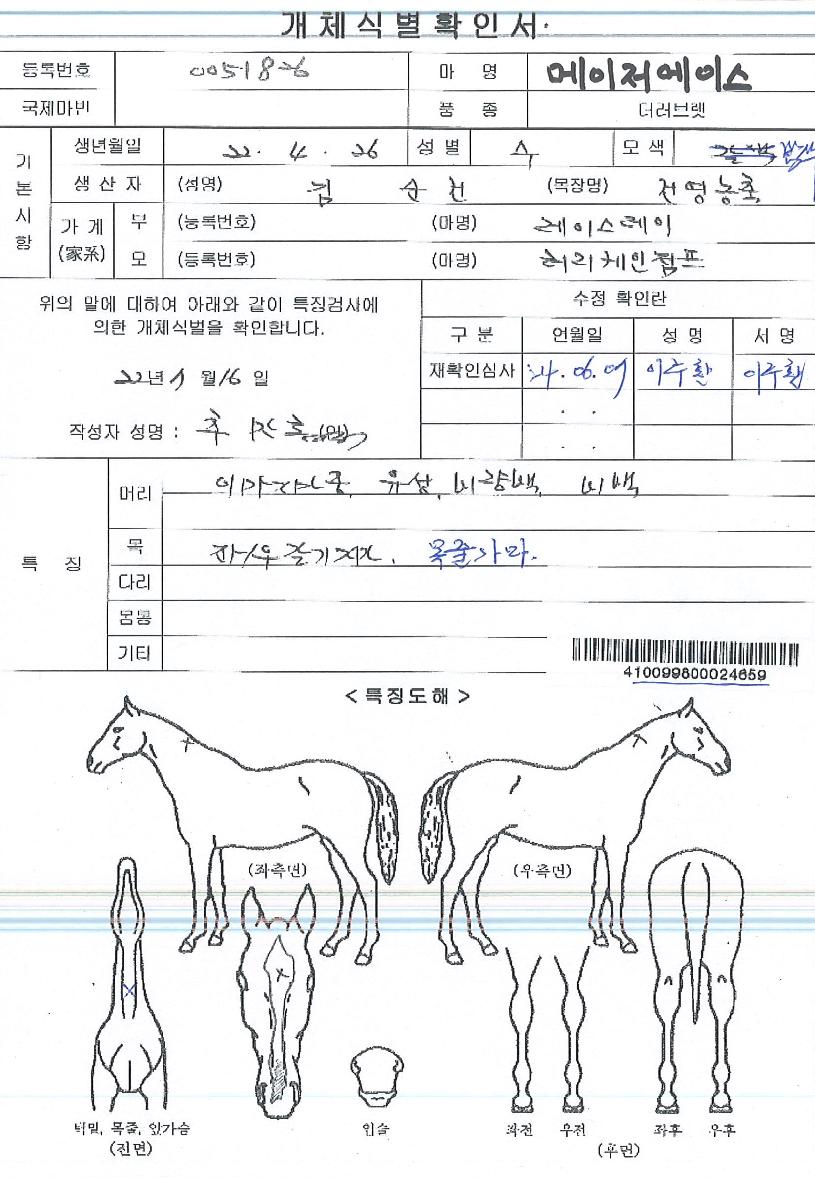 개체식별확인서
등록번호 0051826 마 명 메이저에이스
국제마번 품 종 더러브렛
기본사항
생년월일 22. 4. 26 성별 수 모색
생산자 (성명) 김순천 (목장명) 전영농축
가계(家系) 부 (등록번호) (마명) 레이스데이
모 (등록번호) (마명)
위의 말에 대하여 아래와 같이 특징검사에
의한 개체식별을 확인합니다.
수정 확인란
구분 언월일 성명 서명
재확인심사 24.06.09 이주환 이주환
22년 월 16일
작성자 성명 :
특 징
머리 유성, 비량백, 비백
목 좌/우 목줄가마.
다리
몸통
기타
410099800024659
<특징도해>
(좌측면) (우측면)
턱밑, 목줄, 앞가슴
(전면)
입술
좌전 우전 좌후 우후
(후면)